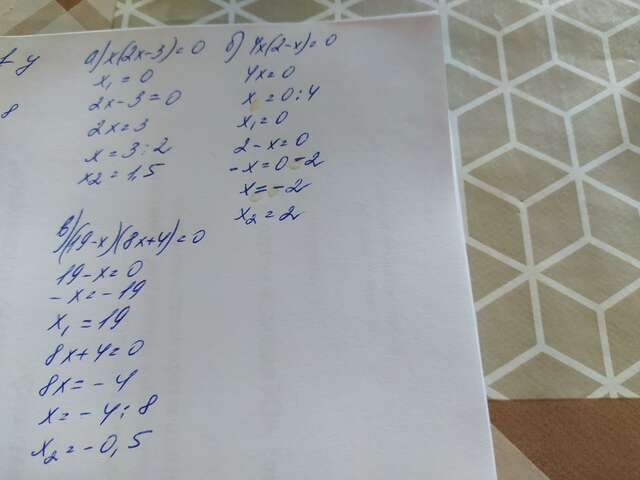 а) x(2x-3)=0
x₁=0
2x-3=0
2x=3
x=3:2
x₂=1,5
б) 4x(2-x)=0
4x=0
x=0:4
x₁=0
2-x=0
-x=0-2
x=-2
x₂=2
в) (19-x)(8x+4)=0
19-x=0
-x=-19
x₁=19
8x+4=0
8x=-4
x=-4:8
x₂=-0,5
8